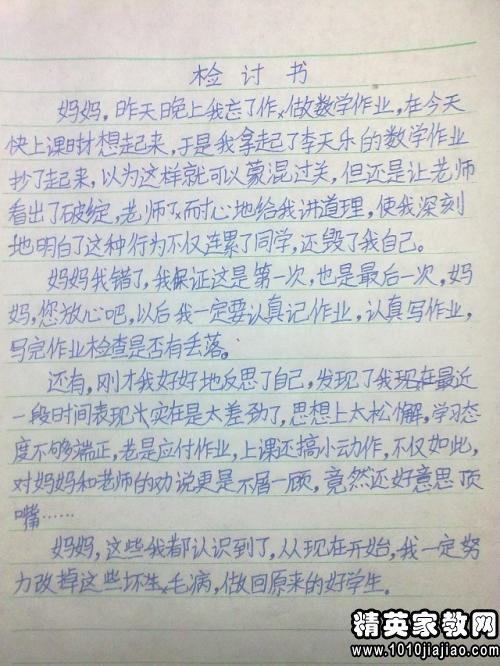 检讨书
妈妈，昨天晚上我忘了做数学作业，在今天
快上课时才想起来，于是我拿起了李天乐的数学作业
抄了起来，以为这样就可以蒙混过关，但还是让老师
看出了破绽，老师耐心地给我讲道理，使我深刻
地明白了这种行为不仅连累了同学，还毁了我自己。
妈妈我错了，我保证这是第一次，也是最后一次，妈
妈，您放心吧，以后我一定要认真记作业，认真写作业，
写完作业检查是否有丢落。
还有，刚才我好好地反思了自己，发现了我现在最近
一段时间表现实在是太差劲了，思想上太松懈，学习态
度不够端正，老是应付作业，上课还搞小动作，不仅如此，
对妈妈和老师的劝说更是不屑一顾，竟然还好意思顶
嘴……
妈妈，这些我都认识到了，从现在开始，我一定努
力改掉这些坏毛病，做回原来的好学生。
精英家教网
www.1010jiajiao.com